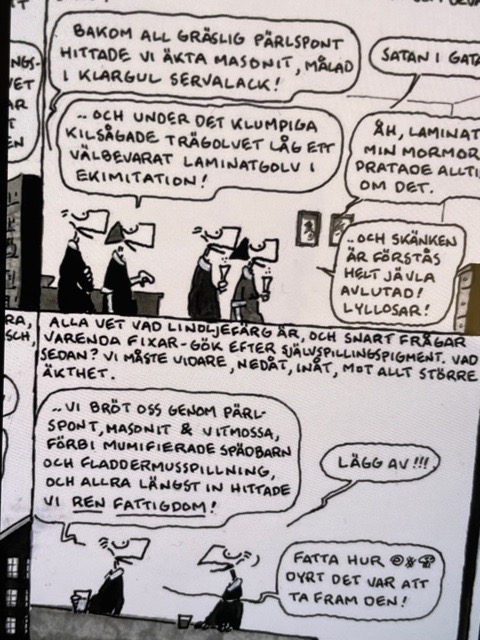 BAKOM ALL GRÄSLIG PÄRLSPONT
HITTADE VI ÄKTA MASONIT, MÅLAD
I KLARGUL SERVALACK!
SATAN I GATA
..OCH UNDER DET KLUMPIGA
KILSÅGADE TRÄGOLVET LÅG ETT
VÄLBEVARAT LAMINATGOLV I
EKIMITATION!
ÅH, LAMINAT
MIN MORMOR
PRATADE ALLTI
OM DET.
..OCH SKÄNKEN
ÄR FÖRSTÅS
HELT JÄVLA
AVLUTAD!
LYLLOSAR!
NGS-
VET
AR
T
EN
RA,
SCH,
ALLA VET VAD LINOLJEFÄRG ÄR, OCH SNART FRÅGAR
VARENDA FIXAR-GÖK EFTER SJÄLVSPILLINGSPIGMENT. VAD
SEDAN? VI MÅSTE VIDARE, NEDÅT, INÅT, MOT ALLT STÖRRE
ÄKTHET.
..VI BRÖT OSS GENOM PÄRL-
SPONT, MASONIT & VITMOSSA,
FÖRBI MUMIFIERADE SPÄDBARN
OCH FLADDERMUSSPILLNING,
OCH ALLRA LÄNGST IN HITTADE
VI REN FATTIGDOM!
LÄGG AV!!!
FATTA HUR
DYRT DET VAR ATT
TA FRAM DEN!